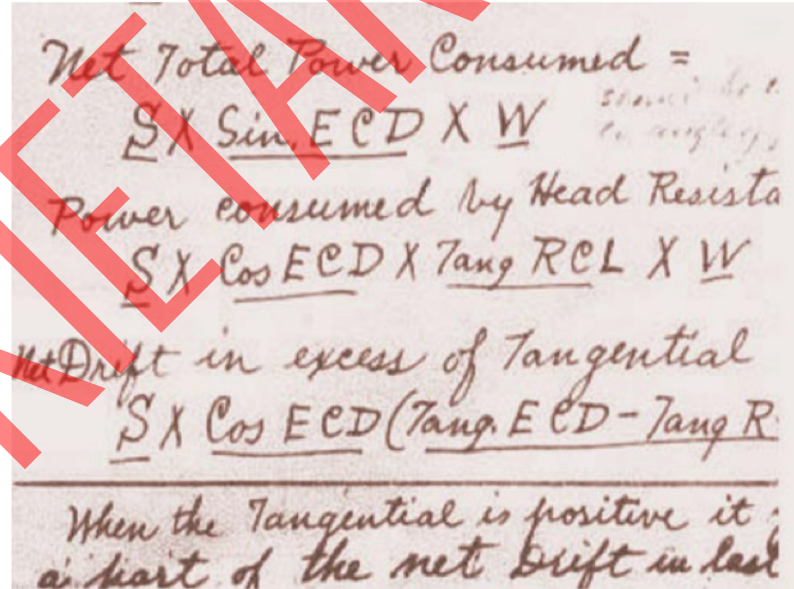 Net Total Power Consumed =
S X Sin. ECD X W
Power consumed by Head Resista
S X Cos ECD X Tang RCL X W
Net Drift in excess of Tangential
S X Cos ECD (Tang. ECD - Tang R
When the Tangential is positive it
a part of the net Drift in last